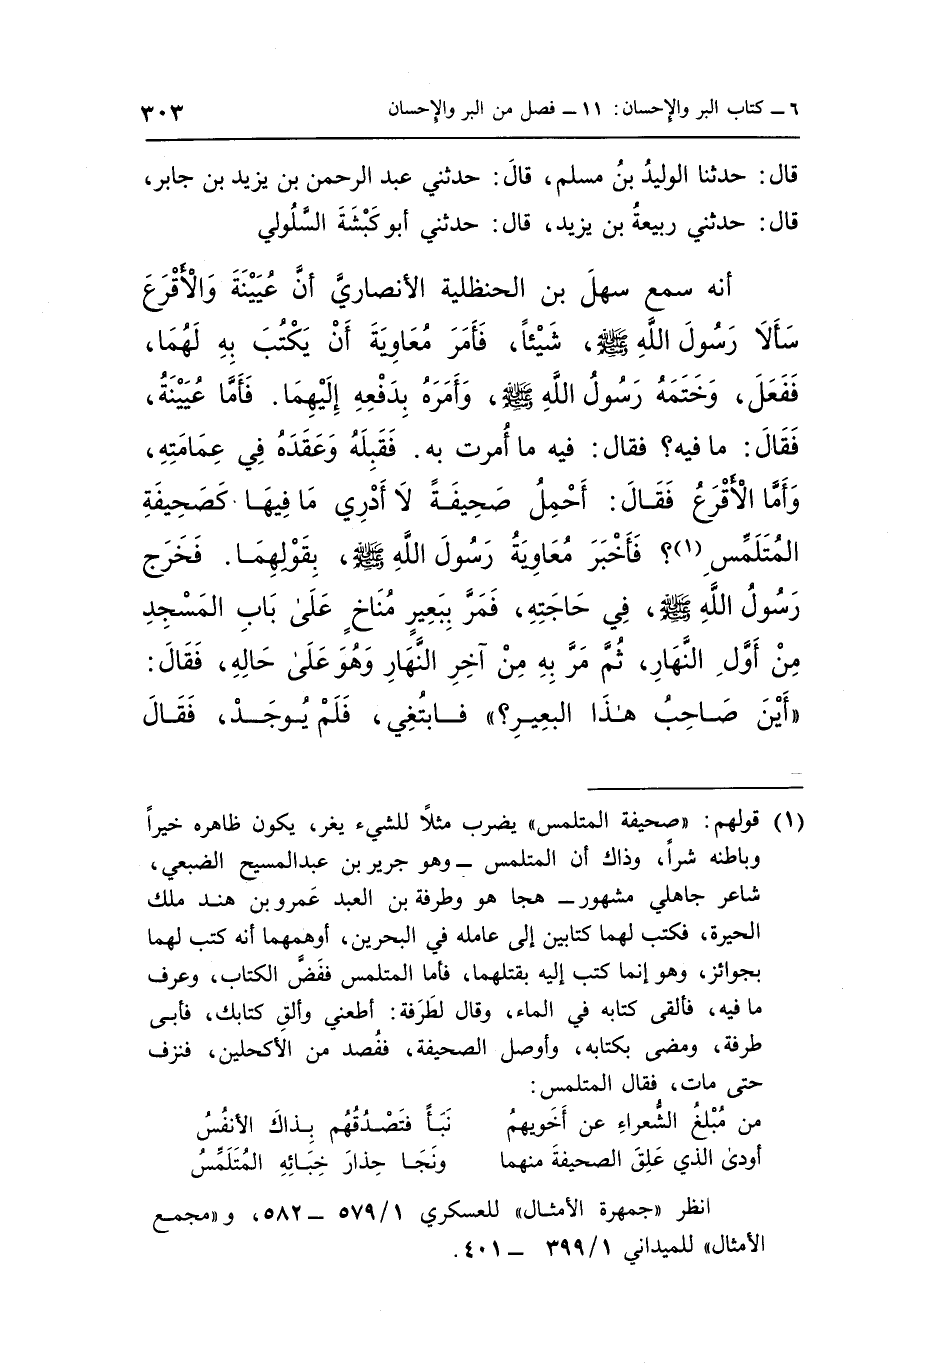 ٦ ــ كتاب البر والإحسان: ١١ ــ فصل من البر والإحسان ٣٠٣
قال: حدثنا الوليدُ بنُ مسلم، قالَ: حدثني عبد الرحمن بن يزيد بن جابر،
قال: حدثني ربيعةُ بن يزيد، قال: حدثني أبو كَبْشَةَ السَّلُولي
أنه سمع سهلَ بن الحنظلية الأنصاريَّ أنَّ عُيَيْنَةَ وَالْأَقْرَعَ
سَأَلَا رَسُولَ اللَّهِ ﷺ، شَيْئاً، فَأَمَرَ مُعَاوِيَةَ أَنْ يَكْتُبَ بِهِ لَهُمَا،
فَفَعَلَ، وَخَتَمَهُ رَسُولُ اللَّهِ ﷺ، وَأَمَرَهُ بِدَفْعِهِ إِلَيْهِمَا. فَأَمَّا عُيَيْنَةُ،
فَقَالَ: ما فيه؟ فقال: فيه ما أُمرت به. فَقَبِلَهُ وَعَقَدَهُ فِي عِمَامَتِهِ،
وَأَمَّا الْأَقْرَعُ فَقَـالَ: أَحْمِلُ صَحِيفَـةً لَا أَدْرِي مَا فِيهَـا كَصَحِيفَةِ
المُتَلَمِّسِ(١)؟ فَأَخْبَرَ مُعَاوِيَةُ رَسُولَ اللَّهِ ﷺ، بِقَوْلِهِمَا. فَخَرَج
رَسُولُ اللَّهِ ﷺ، فِي حَاجَتِهِ، فَمَرَّ بِبَعِيرٍ مُنَاخٍ عَلَىٰ بَابِ المَسْجِدِ
مِنْ أَوَّلِ النَّهَارِ، ثُمَّ مَرَّ بِهِ مِنْ آخِرِ النَّهَارِ وَهُوَ عَلَىٰ حَالِهِ، فَقَالَ:
«أَيْنَ صَـاحِبُ هـٰذَا البَعِيـرِ؟» فــابتُغِي، فَلَمْ يُـوجَـدْ، فَقَـالَ
(١) قولهم: «صحيفة المتلمس» يضرب مثلًا للشيء يغر، يكون ظاهره خيراً
وباطنه شراً، وذاك أن المتلمس ــ وهو جرير بن عبدالمسيح الضبعي،
شاعر جاهلي مشهور ــ هجا هو وطرفة بن العبد عَمرو بن هنـد ملك
الحيرة، فكتب لهما كتابين إلى عامله في البحرين، أوهمهما أنه كتب لهما
بجوائز، وهو إنما كتب إليه بقتلهما، فأما المتلمس ففَضَّ الكتاب، وعرف
ما فيه، فألقى كتابه في الماء، وقال لطَرَفة: أطعني وألقِ كتابك، فأبـى
طرفة، ومضى بكتابه، وأوصل الصحيفة، ففُصد من الأكحلين، فنزف
حتى مات، فقال المتلمس:
من مُبْلغُ الشُّعراءِ عن أَخَويهمُ نَبَـأً فتَصْـدُقُهُم بِـذاكَ الأنفُسُ
أودىٰ الذي عَلِقَ الصحيفةَ منهما ونَجَـا حِذارَ خِبَائِهِ المُتَلَمِّسُ
انظر «جمهرة الأمثـال» للعسكري ١/٥٧٩ ــ ٥٨٢، و«مجمـع
الأمثال» للميداني ١/٣٩٩ ــ ٤٠١.